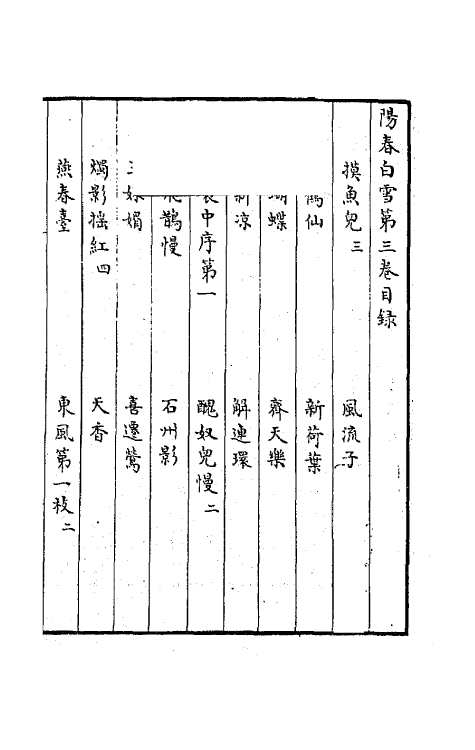 陽春白雪第三卷目録
摸魚兒三　風流子
仙　新荷葉
蝶　齊天樂
新涼　解連環
中序第一　醜奴兒慢二
鵲慢　石州影
媚　喜遷鶯
燭影搖紅四　天香
燕春臺　東風第一枝二